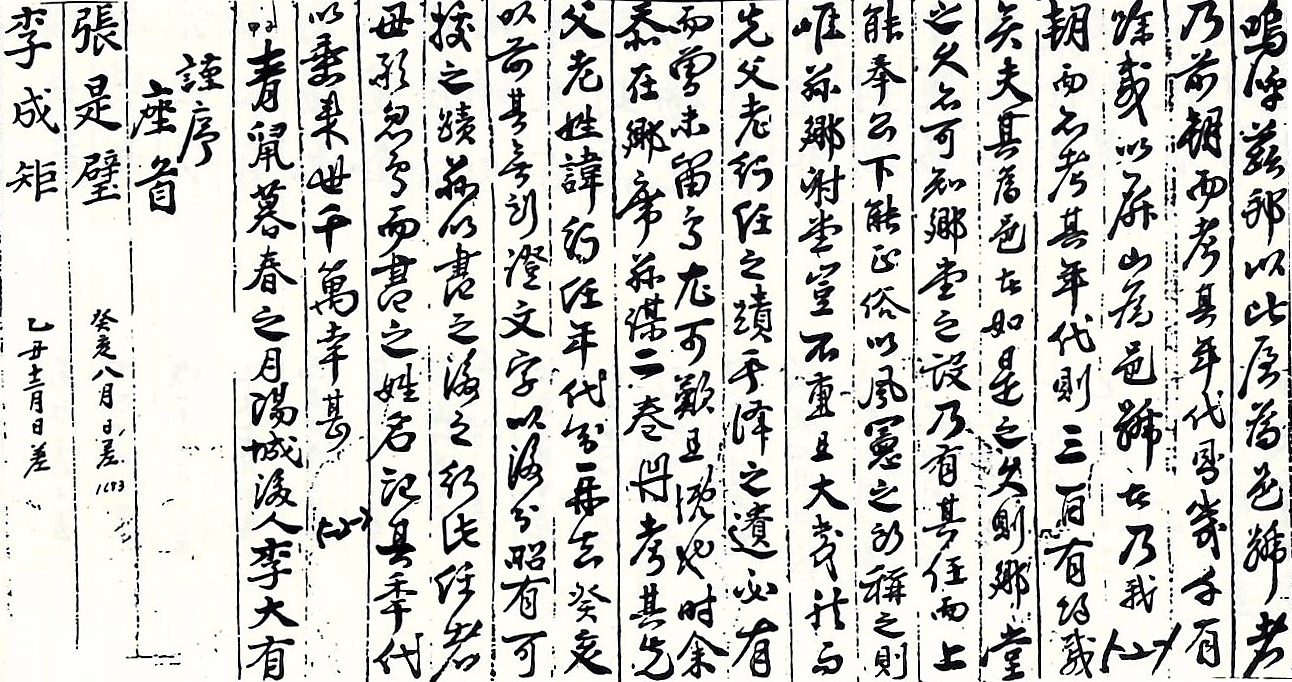 嗚呼茲郡以此原為邑號者
乃前朝而考其年代 幾千有
餘載以屏山為邑號者乃我
朝而亦考其年代則三百有餘載
矣夫其舊邑古如是之久則鄉堂
之久亦可知鄉堂之設乃有其任而上
能奉公下能正俗以風憲之所稱之則
唯茲鄉射堂豈不重且大哉然而
先父老行任之蹟手澤之遺必有
而曾未留焉尤可歎且慨也時余
忝在鄉席茲謀二卷得考其先
父老姓諱行任年代分一冊去癸亥
以前其無訂澄文字以後分昭有可
據之蹟茲以書之後之行此任者
毋敢忽焉而書之姓名記其年代
以垂來世千萬幸甚
時青鼠暮春之月陽城後人李大有
謹序
座首
張是璧 癸亥八月日差 1683
李成矩 乙丑十二月日差